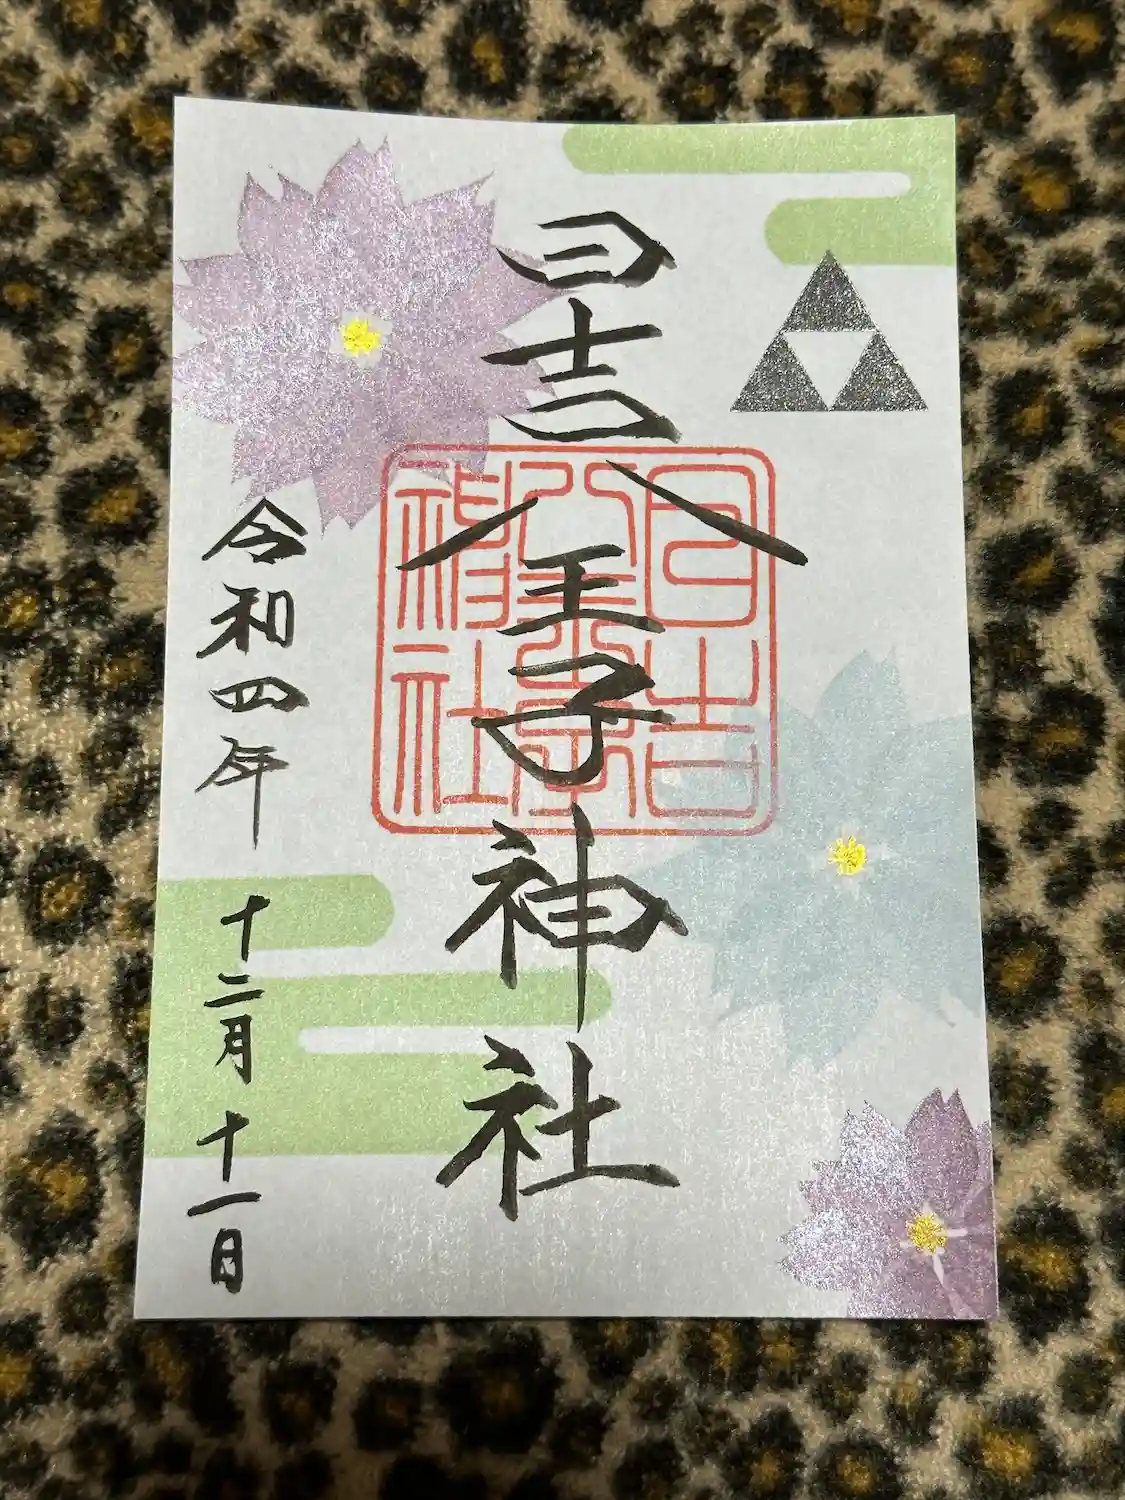 日吉八王子神社
日吉
八王子
神社
令和四年 十二月 十一日